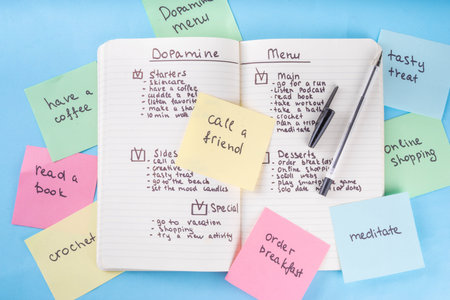 Dopamine
menu
have a
coffee
read a
book
crochet
Dopamine
Starters
- skincare
- have a coffee
- cuddle a pe
- listen favorit
- make a sha
- 10 min wor
Sides
- call a
- creative
- tasty treat
- go to the beach
- set the mood candles
Special
- go to vacation
- shopping
- try a new activity
call a
friend
Menu
Main
- go for a run
- listen podcast
- read book
- take workout
- take a bath
- crochet
- plan a trip
- meditate
Desserts
- order breakfast
- online shop
- scroll
- play smartphone game
- solo date (or date)
tasty
treat
online
shopping
meditate
order
breakfast